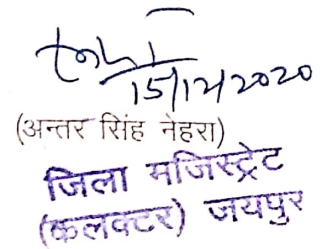 15/12/2020
(अन्तर सिंह नेहरा)
जिला मजिस्ट्रेट
(कलक्टर) जयपुर